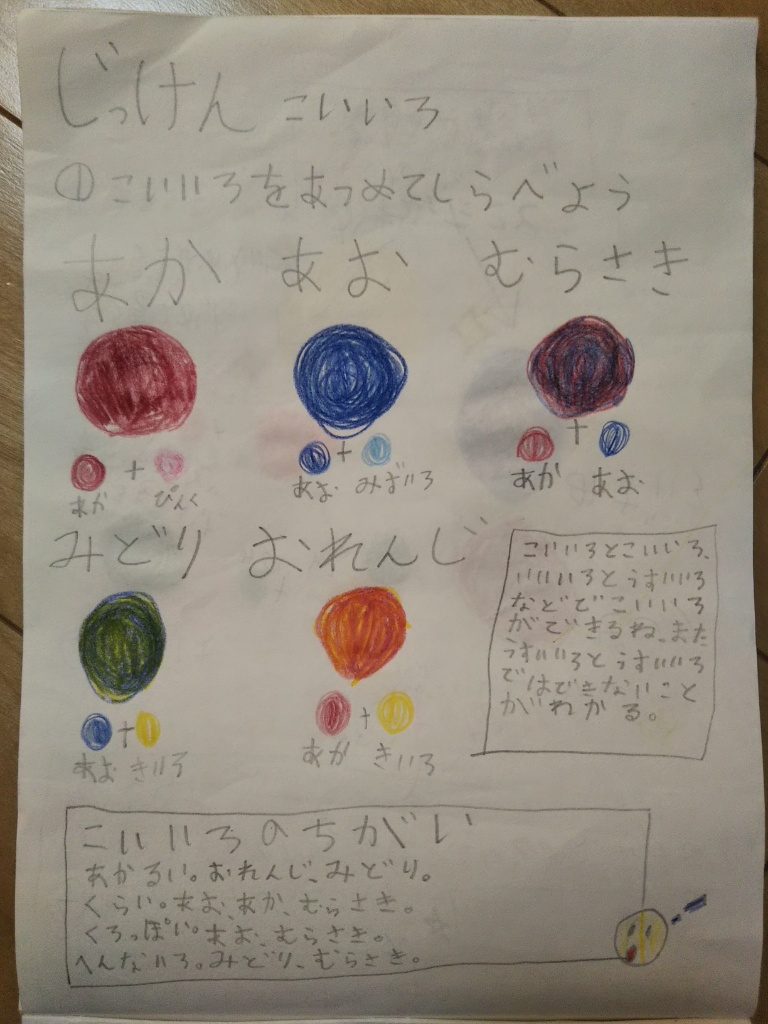 じっけん こいいろ
①こいいろをあつめてしらべよう
あか あお むらさき
+ + +
あか ぴんく あお みずいろ あか あお
みどり おれんじ
+ +
あお きいろ あか きいろ
こいいろとこいいろ、
いいいろとうすいいろ
などでこいいろ
ができるね、また
うすいいろとうすいいろ
ではできないこと
がわかる。
こいいろのちがい
あかるい。おれんじ、みどり。
くらい。あお、あか、むらさき。
くろっぽい。あお、むらさき。
へんないろ。みどり、むらさき。